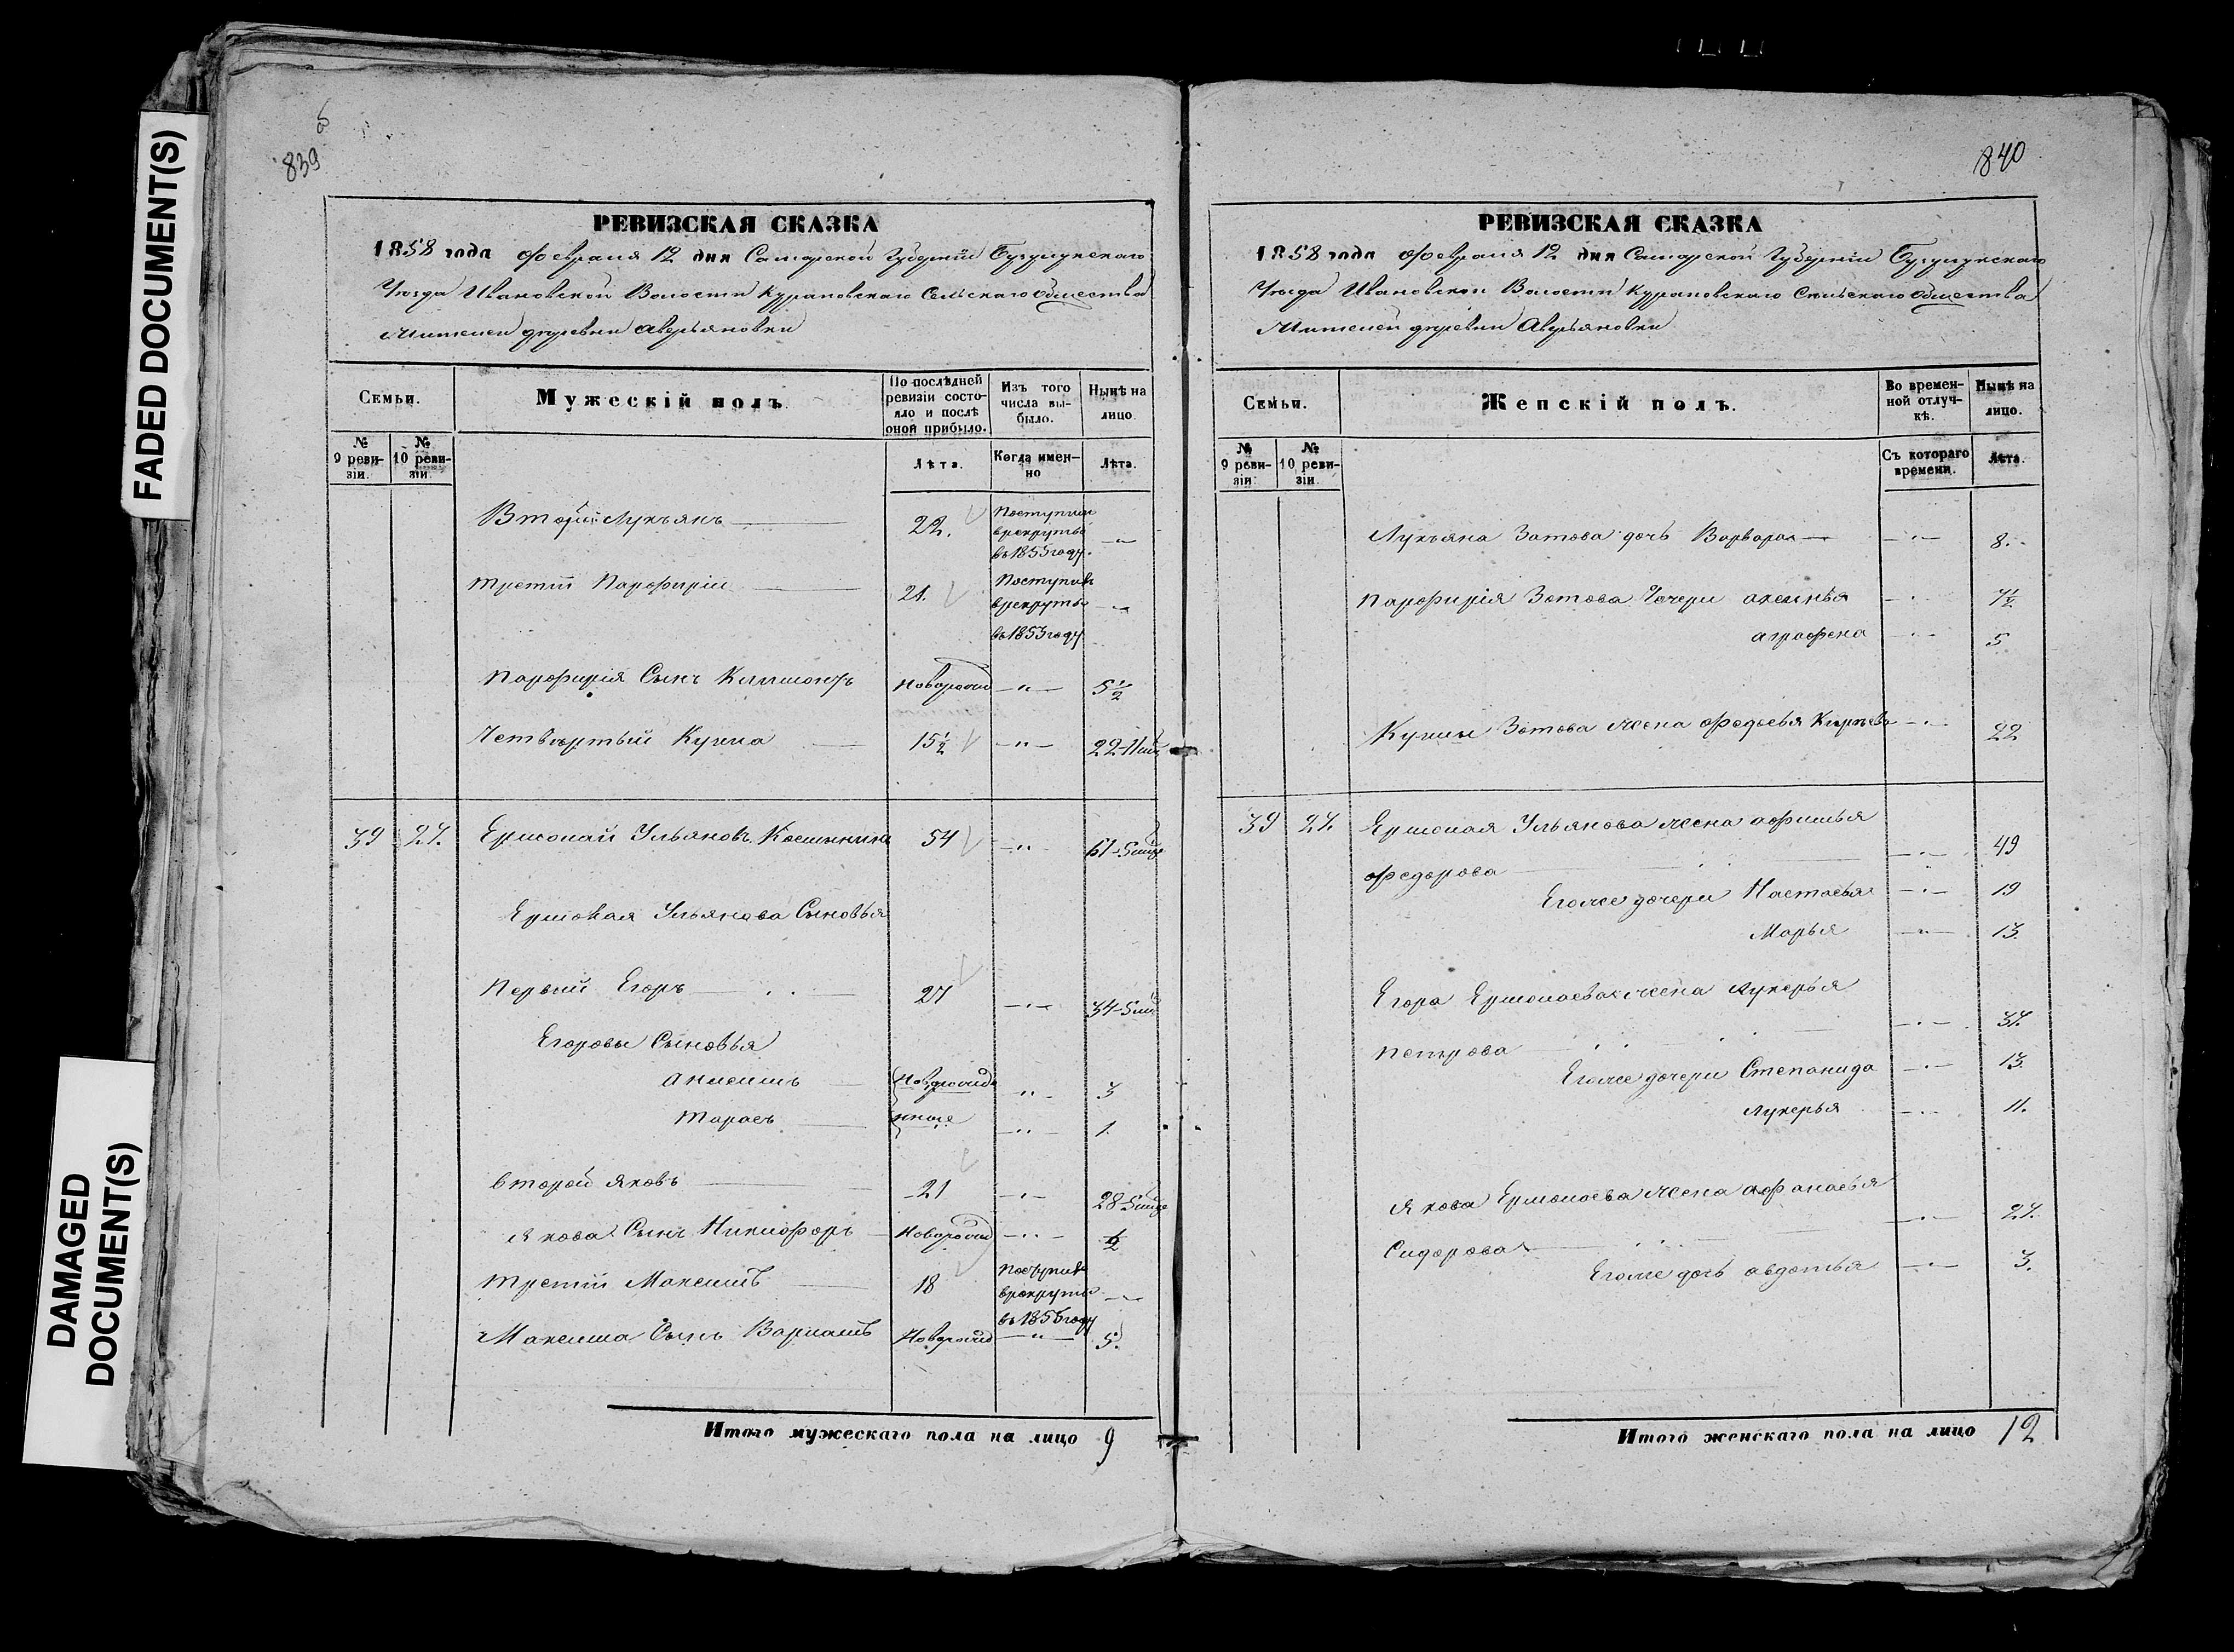 FADED DOCUMENT(S)
DAMAGED
DOCUMENT(S)
839
РЕВИЗСКАЯ СКАЗКА
1858 года февраля 12 дня Самарской Губернии Бугурусланскаго
Уезда Ивановской Волости Курановскаго Сельскаго общества
Жителей деревни Аверьяновки
Семьи.
Мужескій полъ.
По послѣдней
ревизіи состо-
яло и послѣ
оной прибыло.
Изъ того
числа вы-
было.
Нынѣ на
лицо.
№
9 реви-
зіи.
№
10 реви-
зіи.
Лѣта.
Когда имен-
но
Лѣта.
Вторый Лукьянъ 22. Поступилъ
в рекруты
въ 1855 году.
третій Парфирій 21. Поступилъ
в рекруты
въ 1853 году
Парфирія Сынъ новорожд 5 1/2
Четвертый Кузма 15 1/2 22
39 27. Ермолай Ульяновъ 54 61
Ермолая Ульянова Сыновья
Первый Егоръ 27 34
Егоровы Сыновья
Анисимъ новорожде 3
Тарасъ нные 1.
второй Яковъ 21 28
Якова Сынъ Никифоръ новорожд 1/2
третій Максимъ 18 Поступилъ
в рекруты
въ 1855 году
Максима Сынъ Варламъ Новорожд 5.
Итого мужескаго пола на лицо 9
840
РЕВИЗСКАЯ СКАЗКА
1858 года февраля 12 дня Самарской Губернии Бугурусланскаго
Уезда Ивановской Волости Курановскаго Сельскаго общества
Жителей деревни Аверьяновки
Семьи.
Женскій полъ.
Во времен-
ной отлуч-
кѣ.
Нынѣ на
лицо.
№
9 реви-
зіи.
№
10 реви-
зіи.
Съ котораго
времени.
Лѣта.
Лукьяна Зотова дочь Варвара 8.
Парфирія Зотова дочери аксинья 7 1/2
аграфена 5
Кузмы Зотова жена федосья 22
39 27. Ермолая Ульянова жена афимья
федорова 49
Егоже дочери Настасья 19
Марья 13.
Егора Ермолаева жена лукерья
петрова 37.
Егоже дочери Степанида 13.
лукерья 11.
Якова Ермолаева жена афанасья
Сидорова 27.
Егоже дочь авдотья 3.
Итого женскаго пола на лицо 12